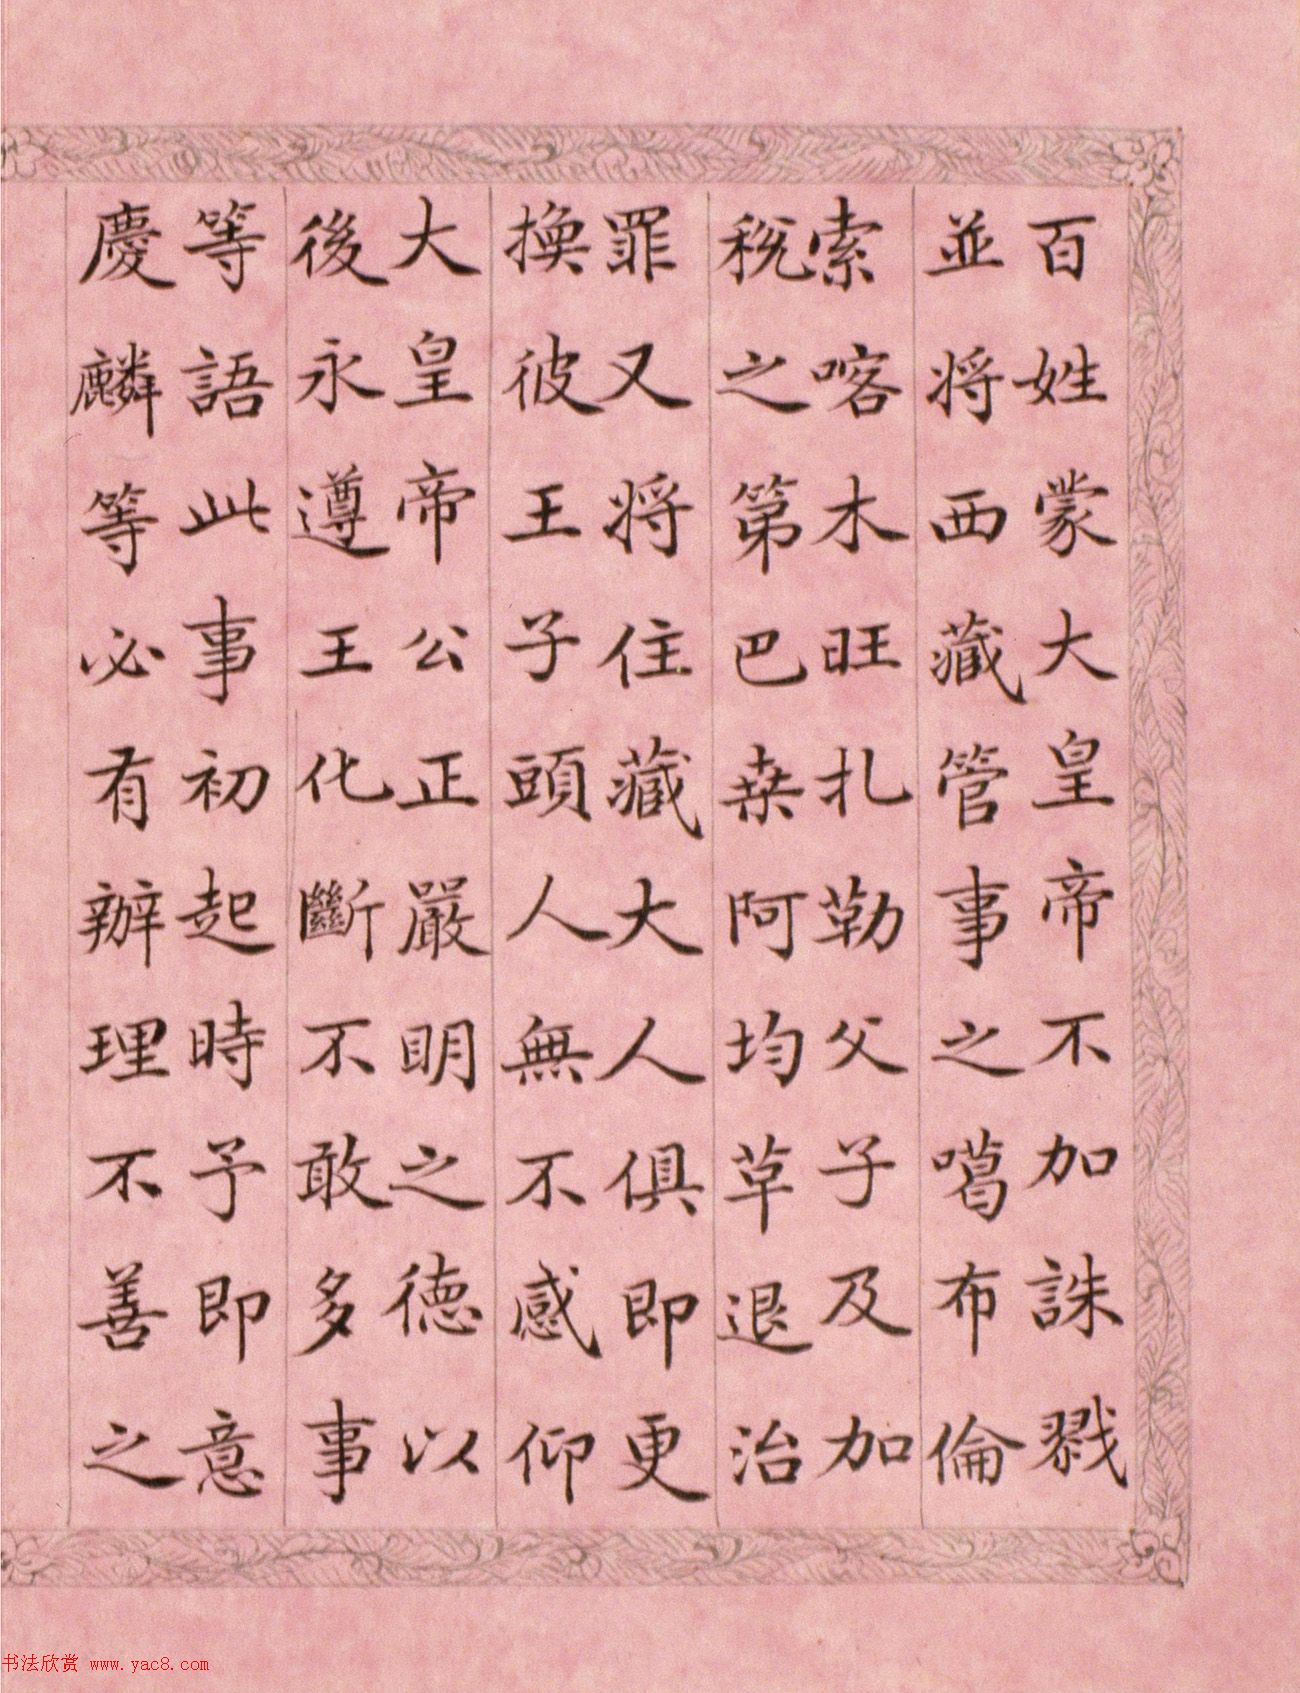 百姓蒙大皇帝不加誅戮
並將西藏管事之噶布倫
索喀木旺扎勒父子及加
稅之第巴桒阿均草退治
罪又将住藏大人俱即更
換彼王子頭人無不感仰
大皇帝公正嚴明之德以
後永遵王化斷不敢多事
等語此事初起時予即意
慶麟等必有辦理不善之
书法欣赏 www.yac8.com